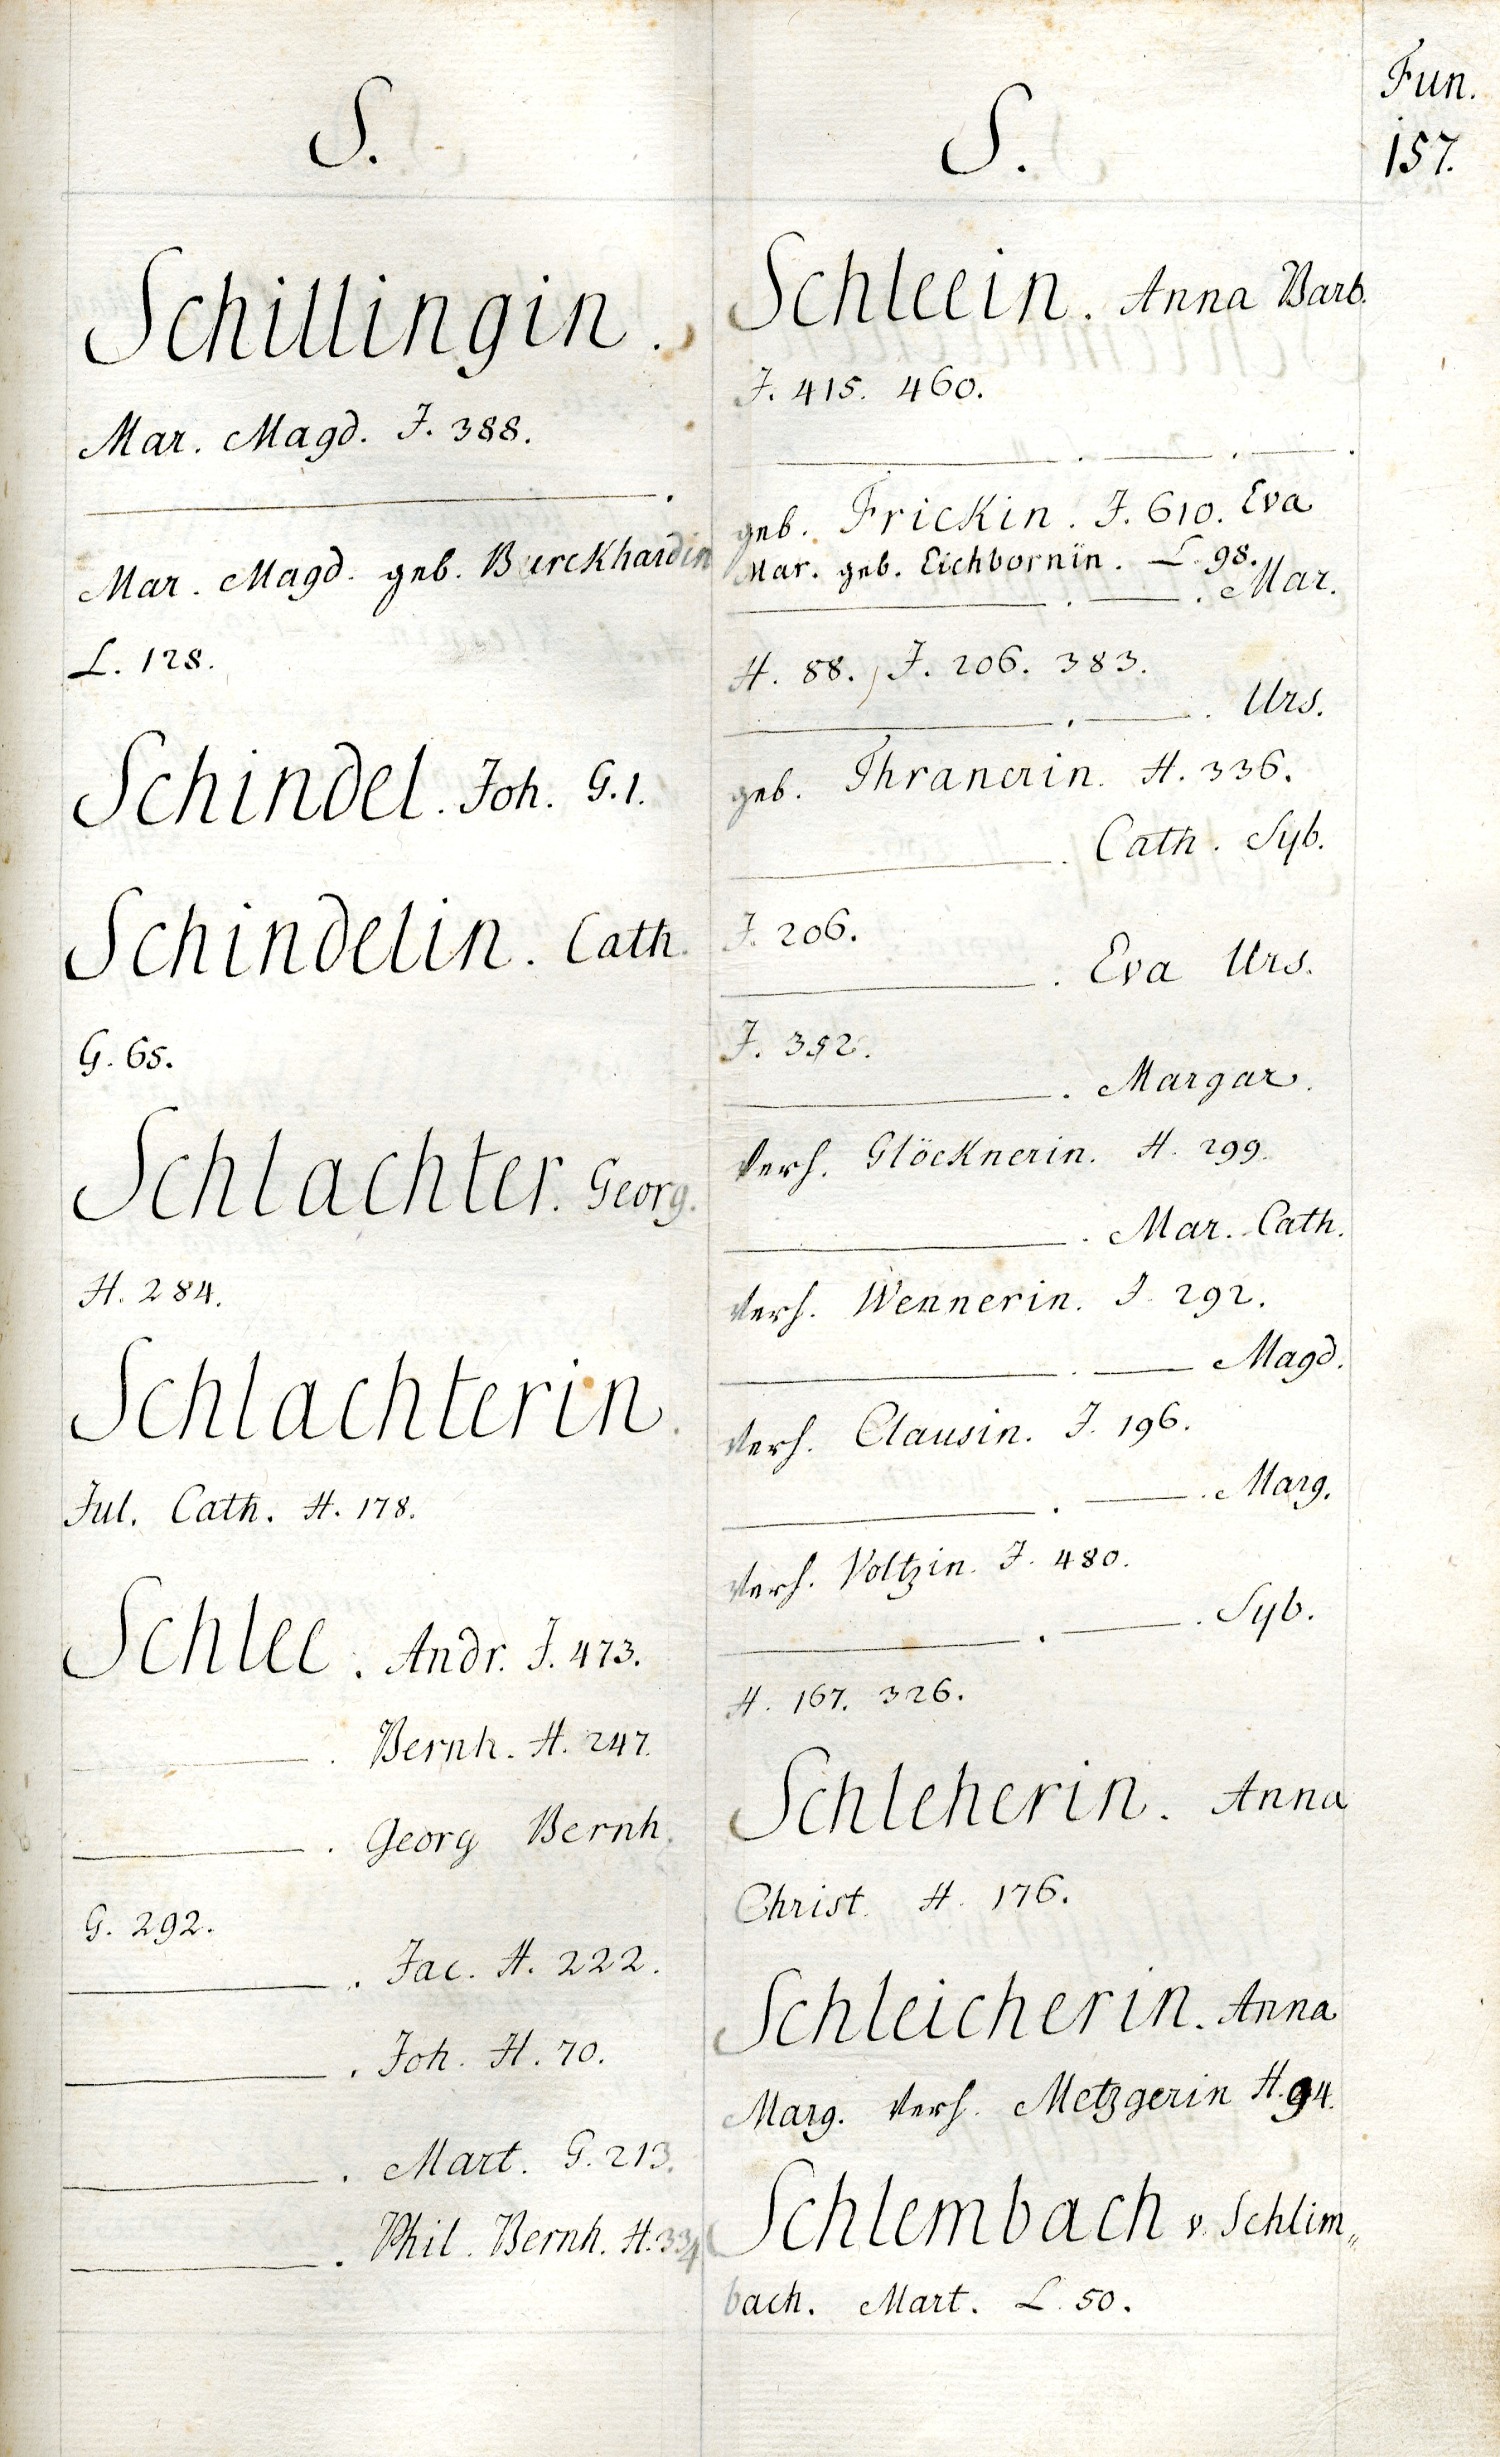 Fun.
157.
S.
Schillingin.
Mar. Magd. J. 388.
———.
Mar. Magd. geb. Burckhardin
L. 128.
Schindel. Joh. G. 1.
Schindelin. Cath.
G. 65.
Schlachter. Georg.
H. 284.
Schlachterin.
Jul. Cath. H. 178.
Schlee. Andr. J. 473.
———. Bernh. H. 247.
———. Georg Bernh.
G. 292.
———. Jac. H. 222.
———. Joh. H. 70.
———. Mart. G. 213.
———. Phil. Bernh. H. 334
S.
Schleein. Anna Barb.
J. 415. 460.
———. ———. ———.
geb. Frickin. J. 610. Eva
Mar. geb. Eichbornin. L. 98.
———. ———. Mar.
H. 88., J. 206. 383.
———. ———. Urs.
geb. Thranerin. H. 336.
———. Cath. Syb.
J. 206.
———. Eva Urs.
J. 352.
———. Margar.
verh. Glöcknerin. H. 299.
———. Mar. Cath.
verh. Wennerin. J. 292.
———. ——— Magd.
verh. Clausin. J. 196.
———. ———. Marg.
verh. Voltzin. J. 480.
———. ———. Syb.
H. 167. 326.
Schleherin. Anna
Christ. H. 176.
Schleicherin. Anna
Marg. verh. Metzgerin H. 94.
Schlembach v. Schlim„
bach. Mart. L. 50.